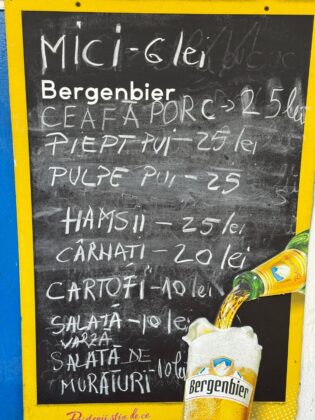 MICI - 6 lei
Bergenbier
CEAFĂ PORC -> 25 lei
PIEPT PUI - 25 lei
PULPE PUI - 25
HAMSII - 25 lei
CÂRNATI - 20 lei
CARTOFI - 10 lei
SALATĂ - 10 lei
VARZĂ
SALATĂ DE
MURĂTURI - 10 lei
Bergenbier
Prietenii știu de ce